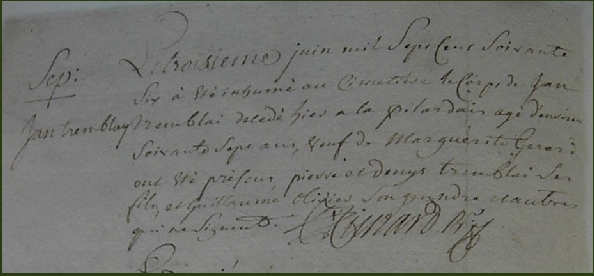 Sep:
Jan tremblay
Le troisieme juin mil Sept Cens Soixante
Six à été inhumé au Cimetiere le Corps de Jan
tremblai decedé hier a la pilardais agé d'environ
Soixante Sept ans, Veuf de Marguerite Gerard
ont été présens, pierre et denys tremblai Ses
fils, et Guillaume olivier Son gendre et autres
qui ne Signent.